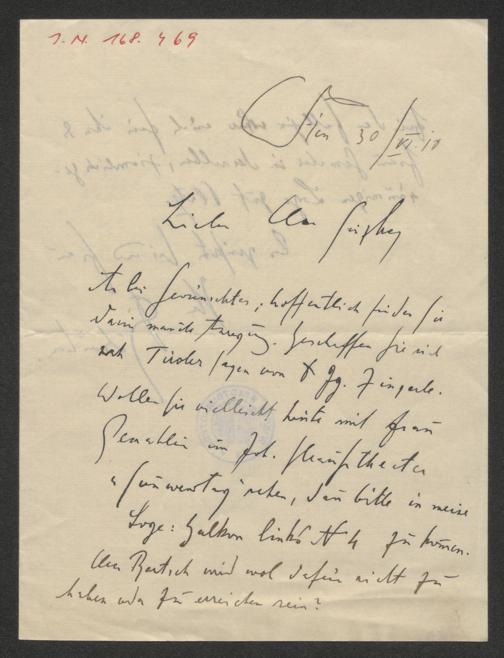 I.N. 168.469
Wien 30/VI.10
Lieber Herr
Anbei Gewünschtes; hoffentlich finden Sie
darin manche Anregung. Beschaffen Sie sich
noch Tiroler Sagen von Ig. Zingerle.
Wollen Sie vielleicht heute mit Frau
Gemahlin im Joh. Straußtheater
"Sonnwendtag" sehen, dann bitte in meine
Loge: Balkon links N 4 zu kommen.
Herr Bartsch wird wol dafür nicht zu
haben oder zu erreichen sein?